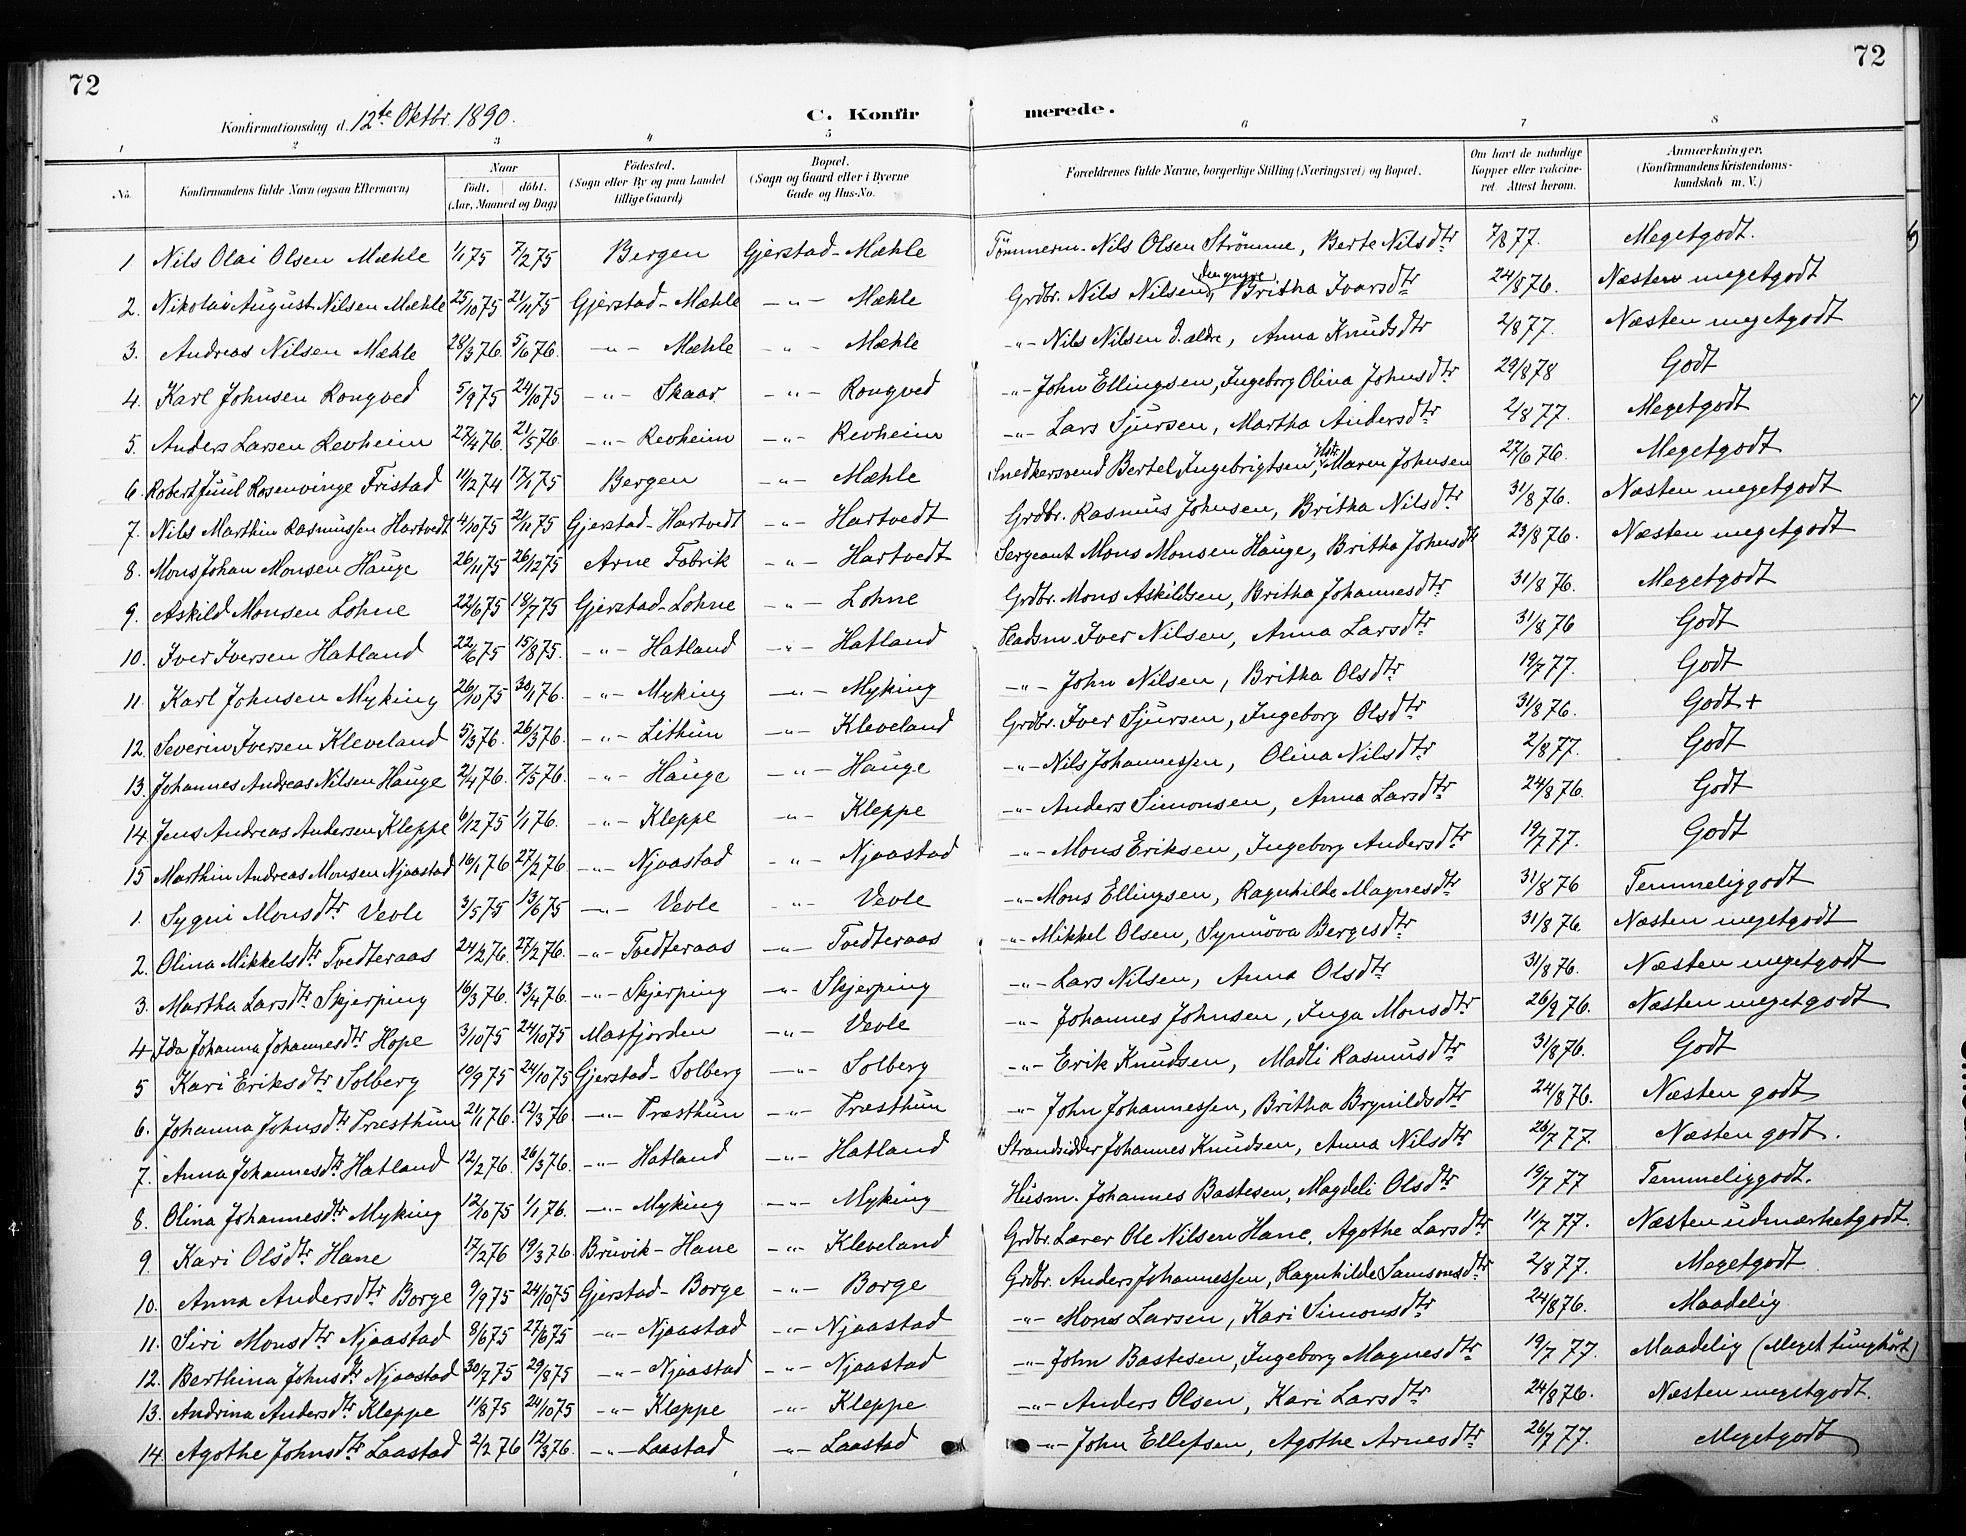 72
72
Konfirmationsdag d. 12te Oktbr. 1890.
C. Konfirmerede.
1 2 3 4 5 6 7 8
No. | Konfirmandens fulde Navn (ogsaa Efternavn) | Naar født. døbt. (Aar, Maaned og Dag) | Fødested. (Sogn eller By og paa Landet tillige Gaard) | Bopæl. (Sogn og Gaard eller i Byerne Gade og Hus-No. | Forældrenes fulde Navne, borgerlige Stilling (Næringsvei) og Bopæl. | Om havt de naturlige Kopper eller vakcineret. Attest herom. | Anmærkninger. (Konfirmandens Kristendomskundskab m. V.)
1 Nils Olai Olsen Mæhle 1/1 75 7/2 75 Bergen Gjerstad - Mæhle Tømmerm. Nils Olsen Strömme, Berte Nilsdtr 7/8 77. Megetgodt.
2. Nikolai August Nilsen Mæhle 25/10 75 21/11 75 Gjerstad - Mæhle -"- Mæhle Grdbr. Nils Nilsen den yngre, Britha Ivarsdtr 24/8 76. Næsten megetgodt
3. Andreas Nilsen Mæhle 28/3 76. 5/6 76. -"- Mæhle -"- Mæhle -"- Nils Nilsen d. ældre, Anna Knudsdtr 2/8 77. Næsten megetgodt
4. Karl Johnsen Rongved 5/9 75 24/10 75 -"- Skaar -"- Rongved -"- John Ellingsen, Ingeborg Olina Johnsdtr 29/8 78 Godt
5. Anders Larsen Revheim 27/4 76. 21/5 76. -"- Revheim -"- Revheim -"- Lars Sjursen, Martha Andersdtr 2/8 77. Megetgodt
6. Robert Juul Rosenvinge Fristad 11/12 74 17/1 75 Bergen -"- Mæhle Snedkersvend Bertel Ingebrigtsen, Maren Johnsen 27/6 76. Megetgodt
7. Nils Marthin Rasmussen Hartvedt 4/10 75 21/11 75 Gjerstad - Hartvedt -"- Hartvedt Grdbr. Rasmus Johnsen, Britha Nilsdtr 31/8 76. Næsten megetgodt
8. Mons Johan Monsen Hauge 26/11 75 26/12 75 Arne Fabrik -"- Hartvedt Sergeant Mons Monsen Hauge, Britha Johnsdtr 23/8 76. Næsten megetgodt
9. Askild Monsen Lohne 22/6 75 18/7 75 Gjerstad - Lohne -"- Lohne Grdbr. Mons Askildsen, Britha Johannesdtr 31/8 76. Megetgodt
10. Iver Iversen Hatland 22/6 75 15/8 75. -"- Hatland -"- Hatland Pladsm. Iver Nilsen, Anna Larsdtr 31/8 76 Godt
11. Karl Johnsen Myking 26/10 75 30/1 76. -"- Myking -"- Myking -"- John Nilsen, Britha Olsdtr 19/7 77. Godt
12. Severin Iversen Kleveland 5/3 76. 26/3 76. -"- Lithun -"- Kleveland Grdbr. Iver Sjursen, Ingeborg Olsdtr 31/8 76. Godt +
13. Johannes Andreas Nilsen Hauge 2/4 76. 7/5 76. -"- Hauge -"- Hauge -"- Nils Johannessen, Olina Nilsdtr 2/8 77. Godt
14. Jens Andreas Andersen Kleppe 6/12 75 1/1 76. -"- Kleppe -"- Kleppe -"- Anders Simonsen, Anna Larsdtr 24/8 76. Godt
15 Marthin Andreas Monsen Njaastad 16/1 76 27/2 76 -"- Njaastad -"- Njaastad -"- Mons Eriksen, Ingeborg Andersdtr 19/7 77. Godt
1. Sygni Monsdtr Vevle 3/5 75 13/6 75 -"- Vevle -"- Vevle -"- Mons Ellingsen, Ragnhilde Magnesdtr 31/8 76 Temmeliggodt
2. Olina Mikkelsdtr Tvedteraas 24/2 76. 27/2 76. -"- Tvedteraas -"- Tvedteraas -"- Mikkel Olsen, Synnöva Bergesdtr 31/8 76. Næsten megetgodt
3. Martha Larsdtr Skjerping 16/3 76. 13/4 76. -"- Skjerping -"- Skjerping -"- Lars Nilsen, Anna Olsdtr 31/8 76. Næsten megetgodt
4. Ida Johanna Johannesdtr Hope 3/10 75 24/10 75 Masfjorden -"- Vevle -"- Johannes Johnsen, Inga Monsdtr 26/9 76. Næsten megetgodt
5 Kari Eriksdtr Solberg 10/9 75 24/10 75 Gjerstad - Solberg -"- Solberg -"- Erik Knudsen, Madli Rasmusdtr 31/8 76. Godt
6. Johanna Johnsdtr Præsthun 21/1 76. 12/3 76 -"- Præsthun -"- Præsthun -"- John Johannessen, Britha Brynildsdtr 24/8 76. Næsten godt
7. Anna Johannesdtr Hatland 12/2 76. 26/3 76. -"- Hatland -"- Hatland Strandsidder Johannes Knudsen, Anna Nilsdtr 26/7 77. Næsten godt.
8. Olina Johannesdtr Myking 12/10 75 1/1 76. -"- Myking -"- Myking Husm. Johannes Bastesen, Magdeli Olsdtr 19/7 77 Temmeliggodt.
9. Kari Olsdtr Hane 17/2 76 19/3 76. Bruvik - Hane -"- Kleveland Grdbr. Lærer Ole Nilsen Hane, Agothe Larsdtr 11/7 77. Næsten udmærketgodt
10. Anna Andersdtr Borge 9/9 75 24/10 75 Gjerstad - Borge -"- Borge Grdbr. Anders Johannessen, Ragnhilde Samsonsdtr 2/8 77. Megetgodt
11. Siri Monsdtr Njaastad 8/6 75 27/6 75 -"- Njaastad -"- Njaastad -"- Mons Larsen, Kari Simonsdtr 24/8 76. Maadelig
12. Berthina Johnsdtr Njaastad 30/7 75 29/8 75 -"- Njaastad -"- Njaastad -"- John Bastesen, Ingeborg Magnesdtr 19/7 77. Maadelig (Meget tunghört)
13. Andrina Andersdtr Kleppe 11/8 75 24/10 75 -"- Kleppe -"- Kleppe -"- Anders Olsen, Kari Larsdtr 24/8 76. Næsten megetgodt.
14. Agothe Johnsdtr Laastad 2/2 76 12/3 76. -"- Laastad -"- Laastad -"- John Ellefsen, Agothe Arnesdtr 26/7 77. Megetgodt